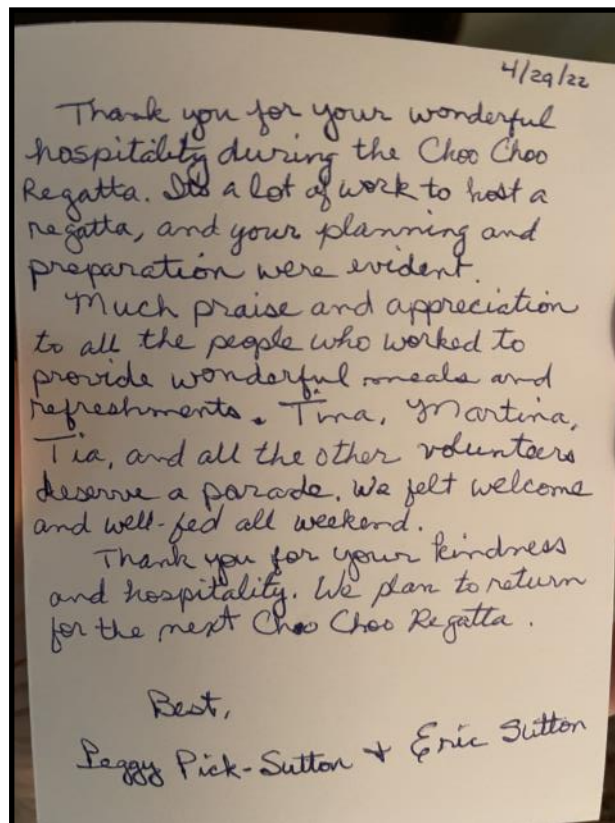 4/29/22
Thank you for your wonderful
hospitality during the Choo Choo
Regatta. It's a lot of work to host a
regatta, and your planning and
preparation were evident.
Much praise and appreciation
to all the people who worked to
provide wonderful meals and
refreshments. Tina, Martina,
Tia, and all the other volunteers
deserve a parade. We felt welcome
and well-fed all weekend.
Thank you for your kindness
and hospitality. We plan to return
for the next Choo Choo Regatta.
Best,
Peggy Pick-Sutton + Eric Sutton